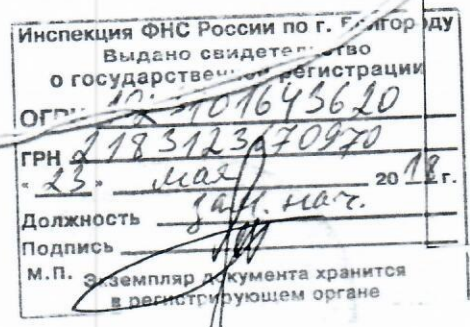 Инспекция ФНС России по г. Белгороду
Выдано свидетельство
о государственной регистрации
ОГРН 1023101643620
ГРН 2183123670970
" 23 " мая 2018 г.
Должность зам. нач.
Подпись
М.П. Экземпляр документа хранится
в регистрирующем органе